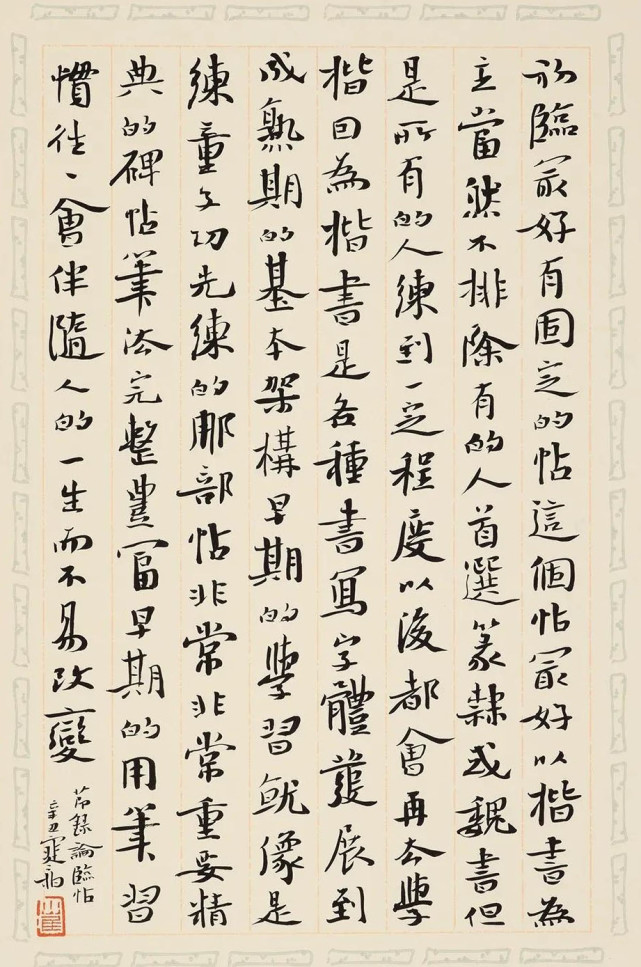 初臨最好有固定的帖這個帖最好以楷書為
主當然不排除有的人首選篆隸或魏書但
是所有的人練到一定程度以後都會再去學
楷因為楷書是各種書寫字體發展到
成熟期的基本架構早期的學習就像是
練童子功先練的那部帖非常非常重要精
典的碑帖筆法完整豐富早期的用筆習
慣往往會伴隨人的一生而不易改變
節錄論臨帖
辛丑